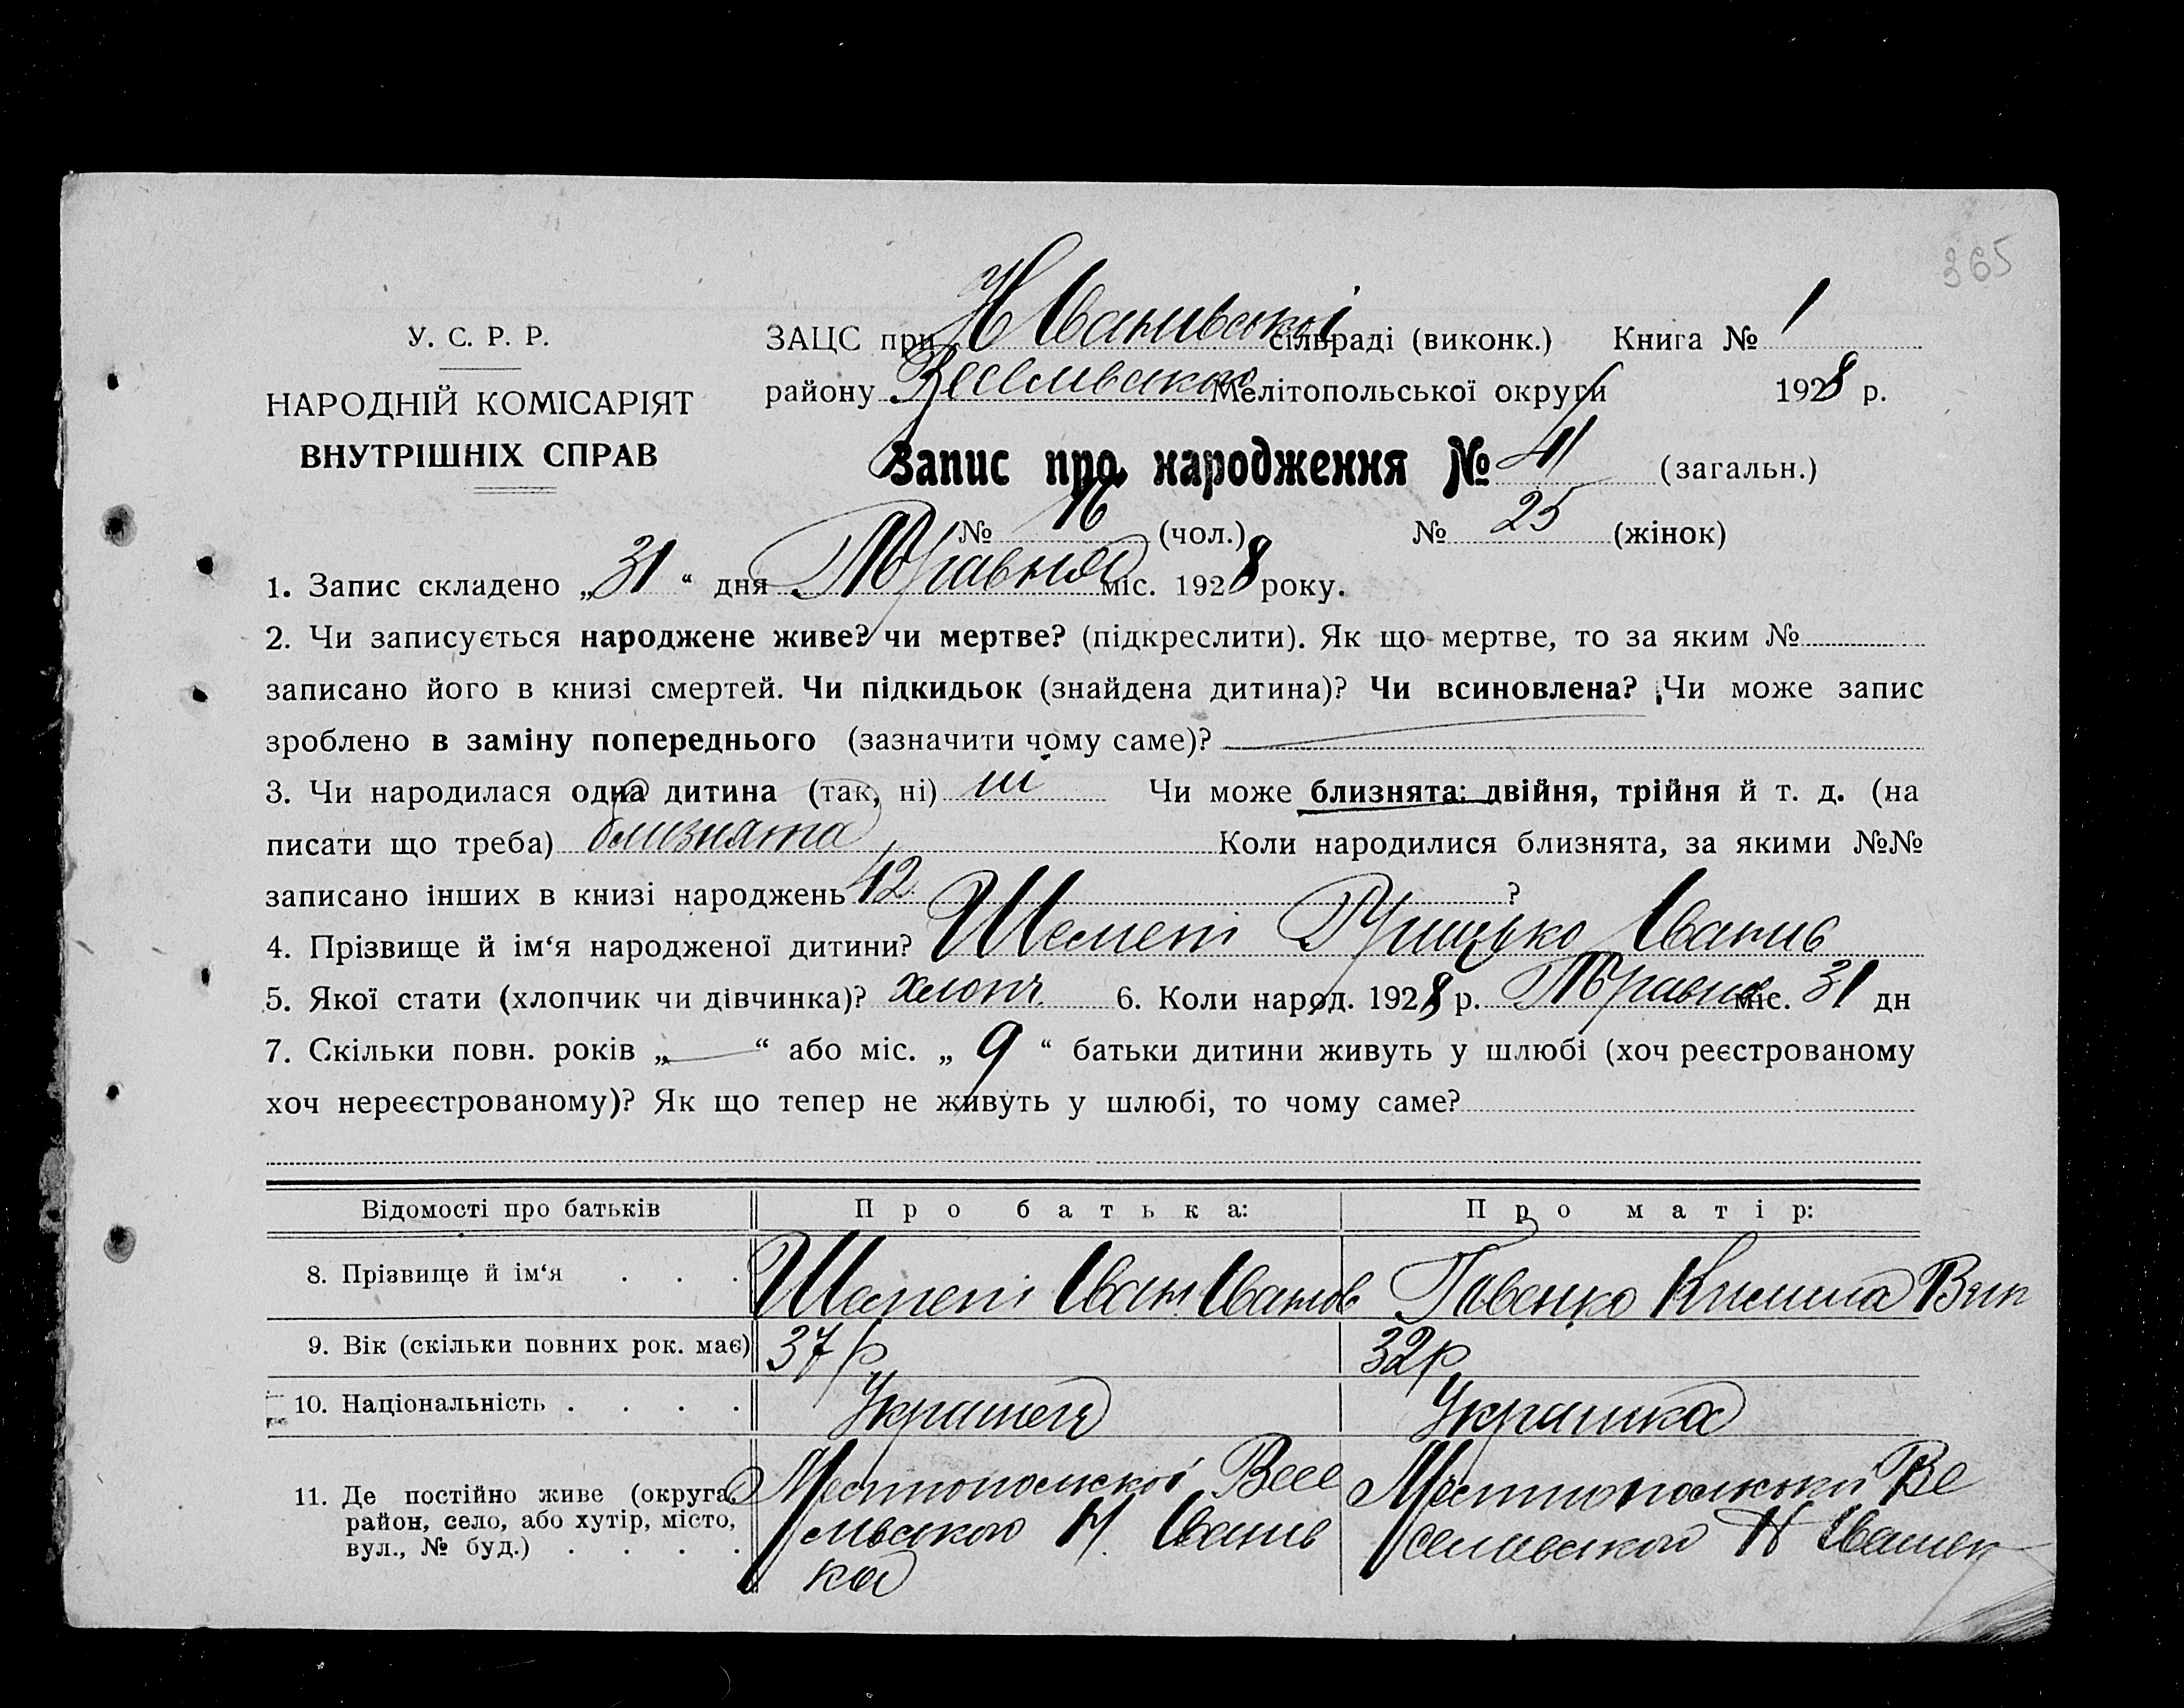 365
У. С. Р. Р.
НАРОДНІЙ КОМІСАРІЯТ
ВНУТРІШНІХ СПРАВ
ЗАЦС при Н Іванивської сільраді (виконк.) Книга № 1
району Веселивського Мелітопольської округи 1928 р.
Запис про народження № 41 (загальн.)
№ 16 (чол.) № 25 (жінок)
1. Запис складено „31“ дня Травня міс. 1928 року.
2. Чи записується народжене живе? чи мертве? (підкреслити). Як що мертве, то за яким №
записано його в книзі смертей. Чи підкидьок (знайдена дитина)? Чи всиновлена? Чи може запис
зроблено в заміну попереднього (зазначити чому саме)?
3. Чи народилася одна дитина (так, ні) ні Чи може близнята: двійня, трійня й т. д. (на
писати що треба) близнята Коли народилися близнята, за якими №№
записано інших в книзі народжень 42 ?
4. Прізвище й ім‘я народженої дитини? Шемет Грицько Іванив
5. Якої стати (хлопчик чи дівчинка)? хлопч. 6. Коли народ. 1928 р. Травня міс. 31 дн
7. Скільки повн. років „—“ або міс. „9“ батьки дитини живуть у шлюбі (хоч реєстрованому
хоч нереєстрованому)? Як що тепер не живуть у шлюбі, то чому саме?
Відомості про батьків Про батька: Про матір:
8. Прізвище й ім‘я . . . Шемет Іван Іванов
9. Вік (скільки повних рок. має) 37 р 32 р
10. Національність . . . . Українец Українка
11. Де постійно живе (округа, район, село, або хутір, місто, вул., № буд.) . . . .
Н. Іванив
ка